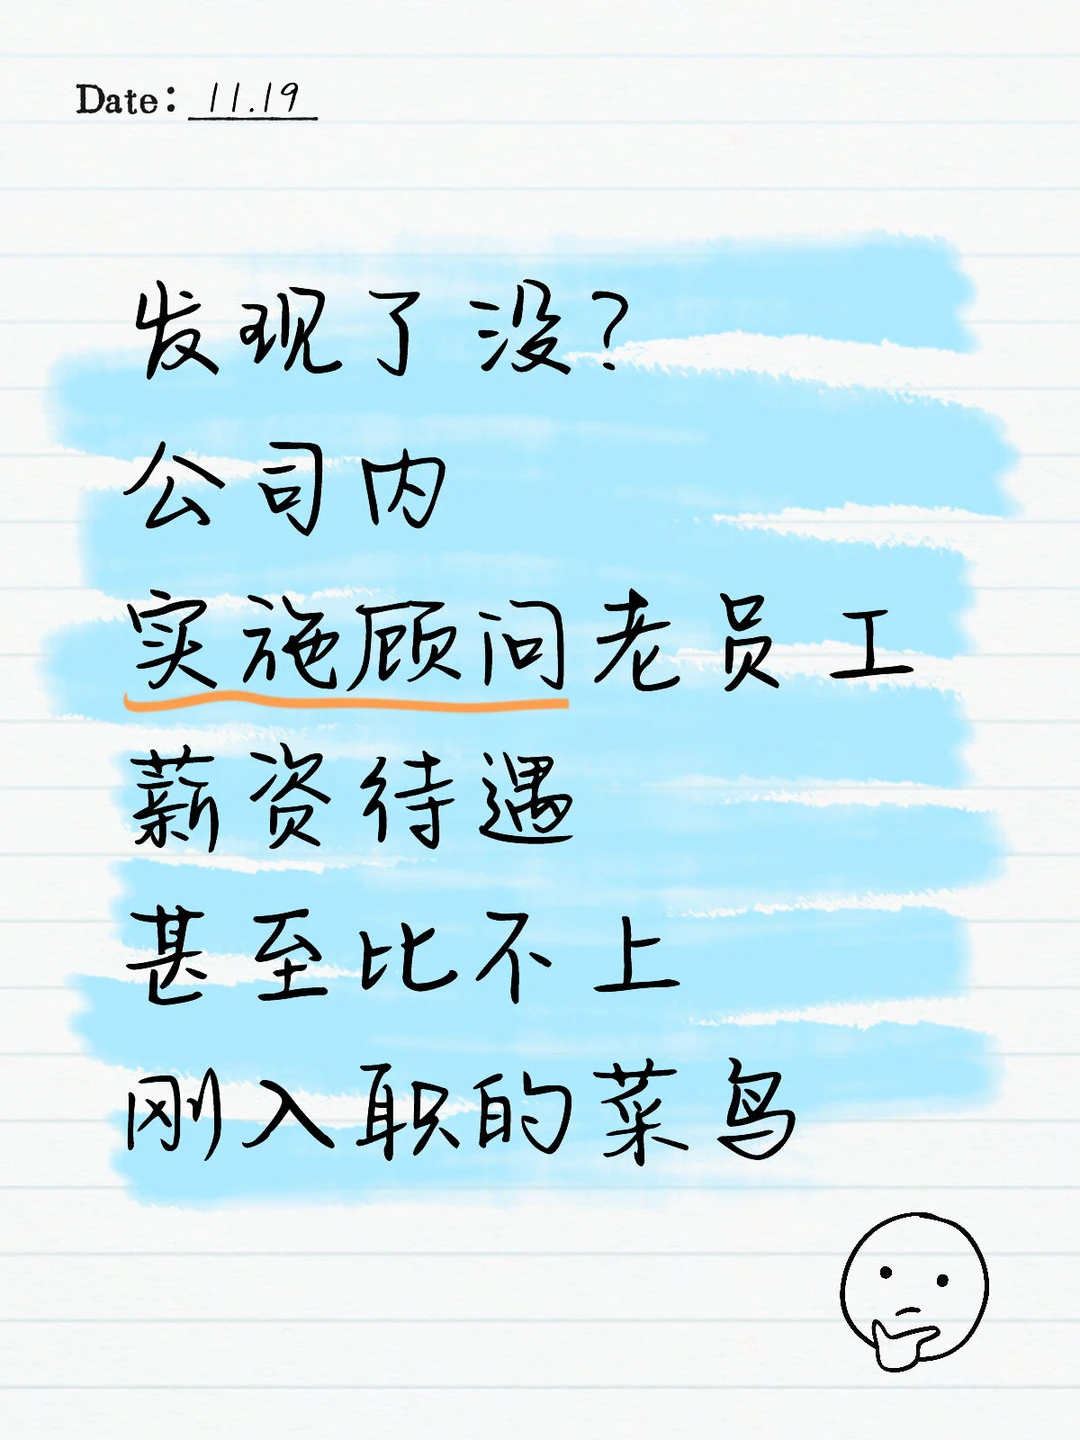 Date: 11.19
发现了没?
公司内
实施顾问老员工
薪资待遇
甚至比不上
刚入职的菜鸟